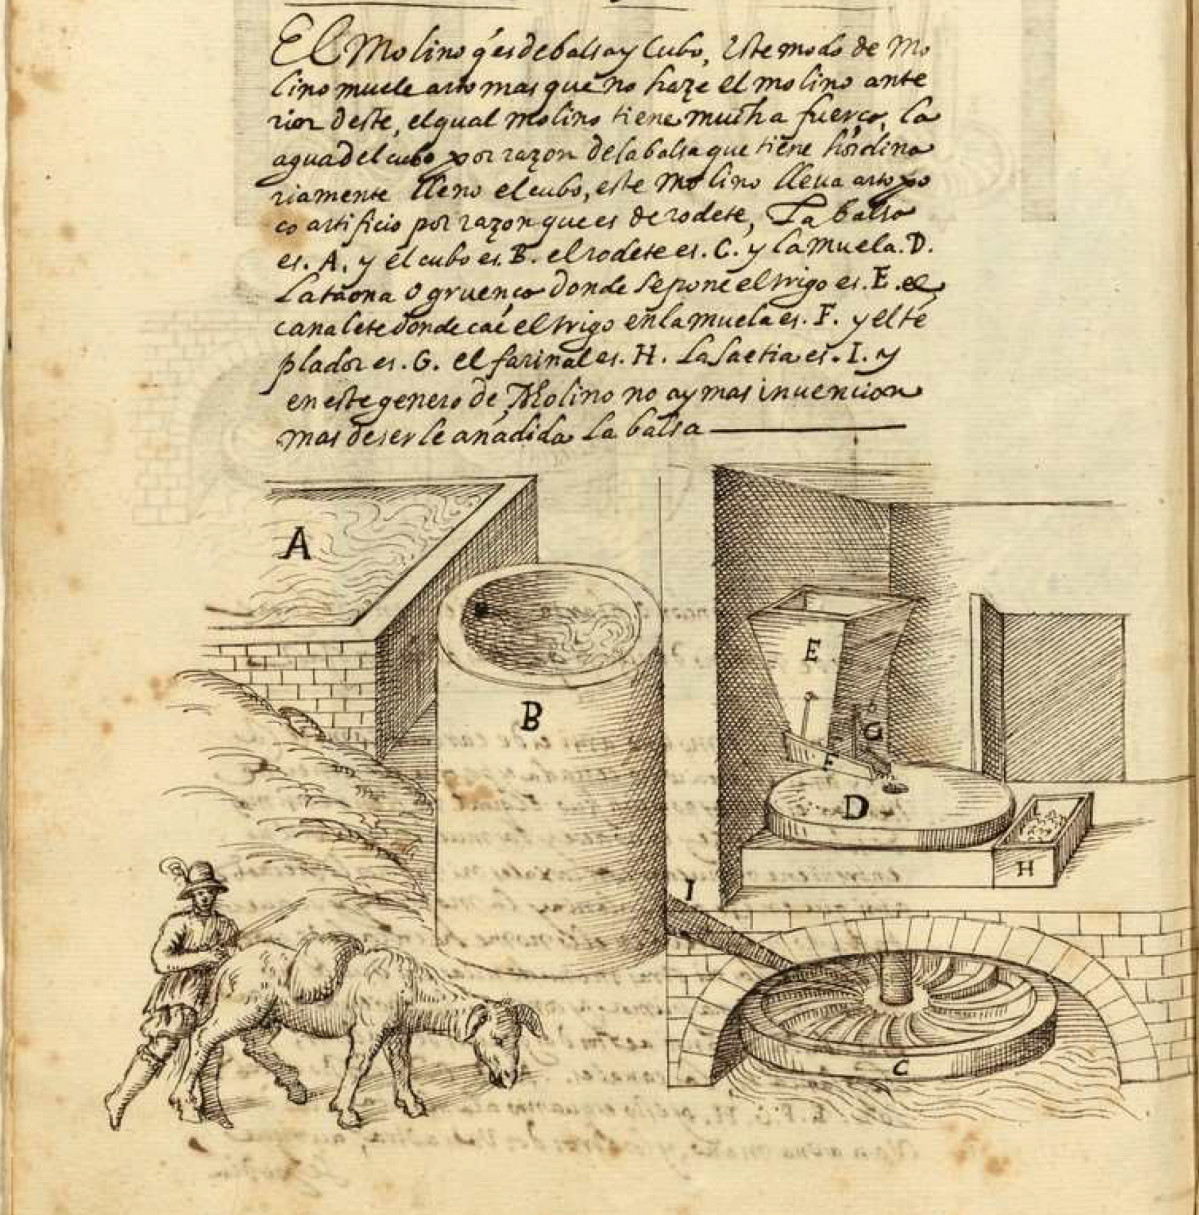 El Molino q́ es de balsa y Cubo, Este modo de Mo
lino muele arto mas que no haze el molino ante
rior deste, el qual molino tiene mucha fuerça, la
agua del cubo por razon de la balsa que tiene hordina
riamente lleno el cubo, este Molino lleua arto po
co artificio por razon que es de rodete, La balsa
es. A. y el cubo es. B. el rodete es. C. y la muela. D.
La taona o gruença donde se pone el trigo es. E. el
canalete donde cae el trigo en la muela es. F. y el tē
plador es. G. el farinal es. H. La saetia es. I. y
en este genero de Molino no ay mas inuencion
mas de serle añadida la balsa
A
B
E
G
F
D
H
I
C